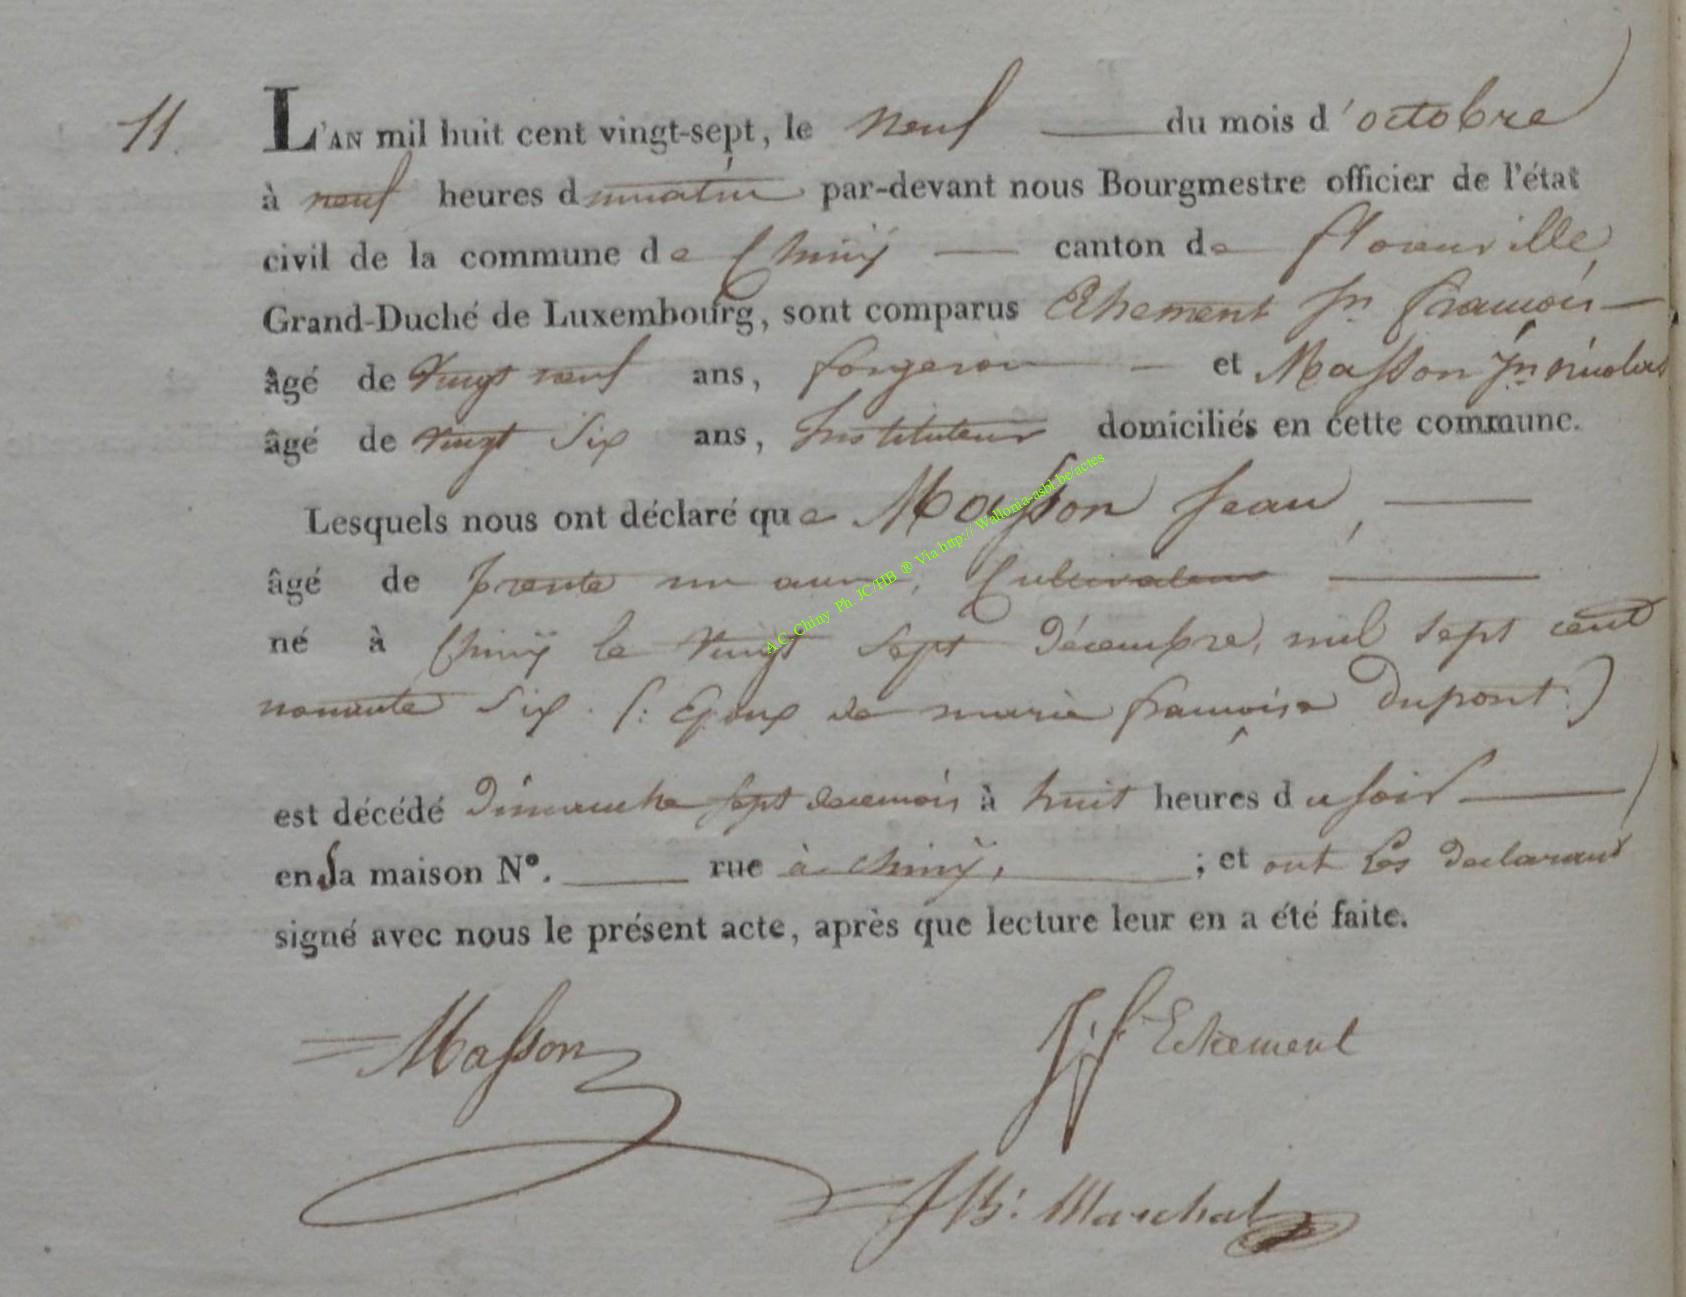 11. L'AN mil huit cent vingt-sept, le neuf du mois d'octobre
à neuf heures du matin par-devant nous Bourgmestre officier de l'état
civil de la commune de Chinÿ canton de florenville,
Grand-Duché de Luxembourg, sont comparus Ehement jn françois
âgé de vingt neuf ans, forgeron et Masson jn nicolas
âgé de vingt Six ans, Instituteur domiciliés en cette commune.
Lesquels nous ont déclaré que Masson jean,
âgé de trente un ans, Cultivateur
né à Chinÿ le vingt sept Décembre, mil sept cent
nonante Six. (: Epoux de marie françoise Dupont :)
est décédé Dimanche sept de ce mois à huit heures du soir
en sa maison N°. rue à chinÿ, ; et ont les declarant
signé avec nous le présent acte, après que lecture leur en a été faite.
Masson
Marchal
A.C. Chiny Ph. JC/HB ® Via http:// Wallonia-asbl.be/actes